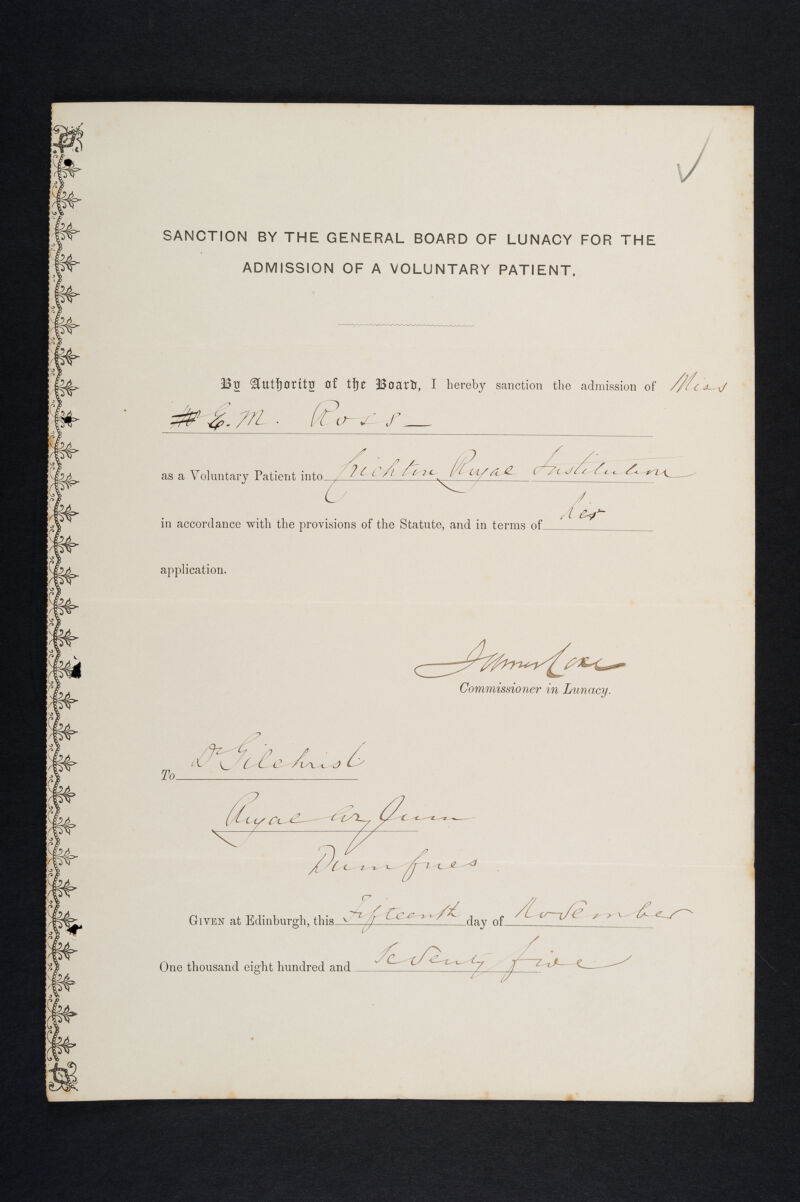 SANCTION BY THE GENERAL BOARD OF LUNACY FOR THE
ADMISSION OF A VOLUNTARY PATIENT.
By Authority of the Board, I hereby sanction the admission of Miss
E. M. Ross
as a Voluntary Patient into Crichton Royal Institution
in accordance with the provisions of the Statute, and in terms of her
application.
James Coxe
Commissioner in Lunacy.
To Dr Gilchrist
Royal Asylum
Dumfries
GIVEN at Edinburgh, this Fifteenth day of November
One thousand eight hundred and Seventy five